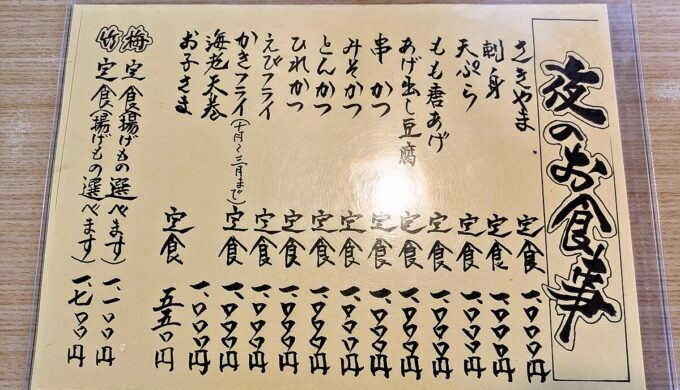 夜のお食事
さきやま定食 一、〇〇〇円
刺身定食 一、〇〇〇円
天ぷら定食 一、〇〇〇円
もも唐あげ定食 一、〇〇〇円
あげ出し豆腐定食 一、〇〇〇円
串かつ定食 一、〇〇〇円
みそかつ定食 一、〇〇〇円
とんかつ定食 一、〇〇〇円
ひれかつ定食 一、〇〇〇円
えびフライ定食 一、〇〇〇円
かきフライ(十月〜三月まで)定食 一、〇〇〇円
海老天巻 一、〇〇〇円
お子さま定食 五五〇円
梅定食(揚げもの選べます) 一、一〇〇円
竹定食(揚げもの選べます) 一、七〇〇円